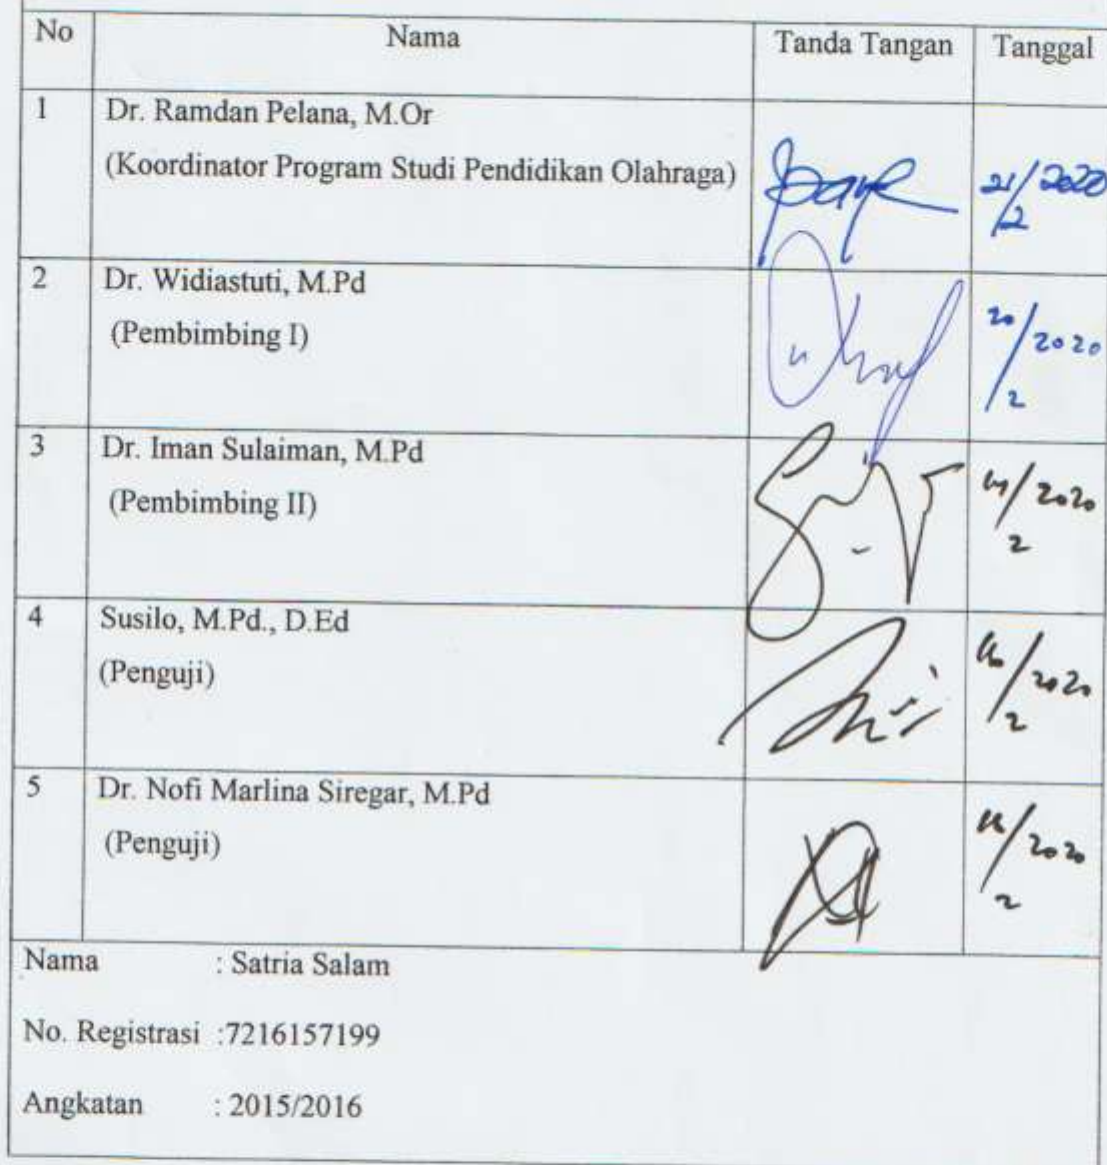 No Nama Tanda Tangan Tanggal
1 Dr. Ramdan Pelana, M.Or
(Koordinator Program Studi Pendidikan Olahraga) 21/2020
2
2 Dr. Widiastuti, M.Pd
(Pembimbing I) 20/2020
2
3 Dr. Iman Sulaiman, M.Pd
(Pembimbing II) /2020
2
4 Susilo, M.Pd., D.Ed
(Penguji) /2020
2
5 Dr. Nofi Marlina Siregar, M.Pd
(Penguji) /2020
2
Nama : Satria Salam
No. Registrasi :7216157199
Angkatan : 2015/2016